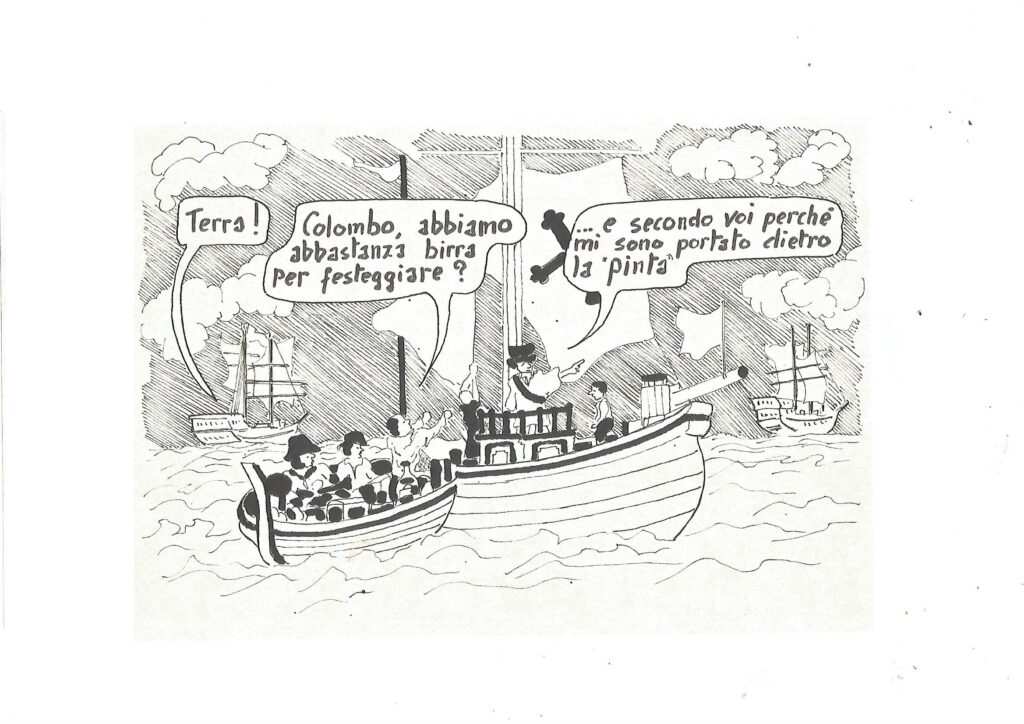 Terra!
Colombo, abbiamo
abbastanza birra
per festeggiare?
... e secondo voi perché
mi sono portato dietro
la "pinta"